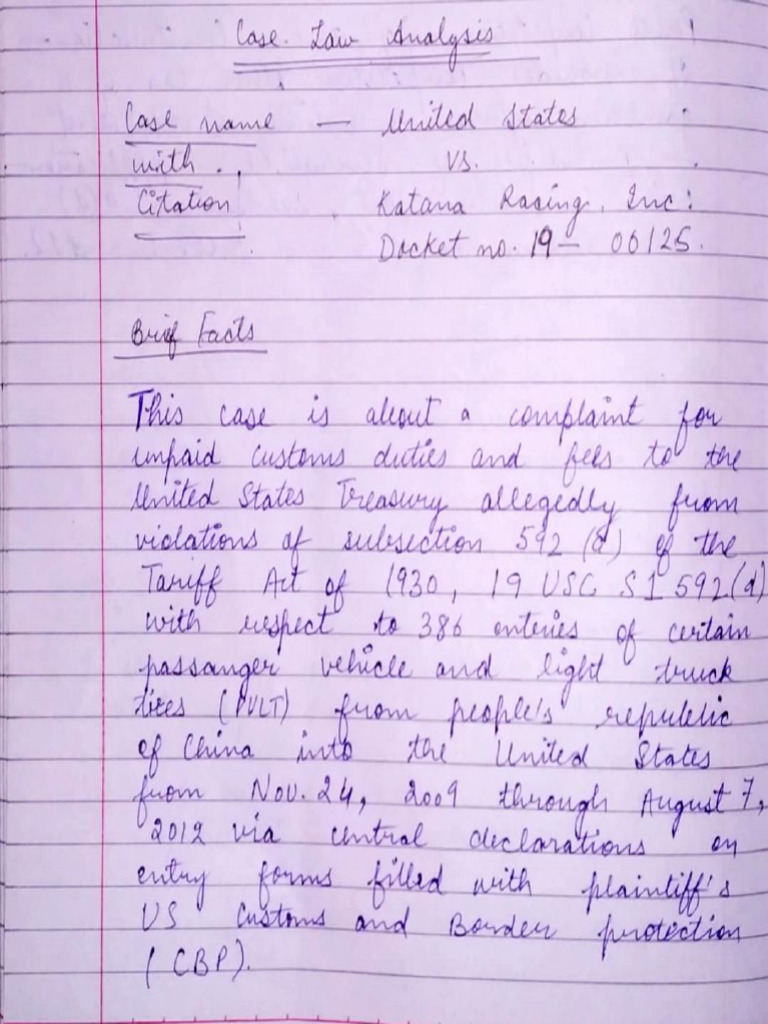 Case Law Analysis
Case name — United States
with vs.
Citation Katana Racing, Inc:
Docket no. 19 – 00125.
Brief Facts
This case is about a complaint for
unpaid customs duties and fees to the
United States Treasury allegedly from
violations of subsection 592 (d) of the
Tariff Act of 1930, 19 USC S1592(d)
with respect to 386 enteries of certain
passanger vehicle and light truck
tires (PVLT) from people's republic
of China into the United States
from Nov. 24, 2009 through August 7,
2012 via central declarations on
entry forms filled with plaintiff's
US Customs and Border protection
(CBP).